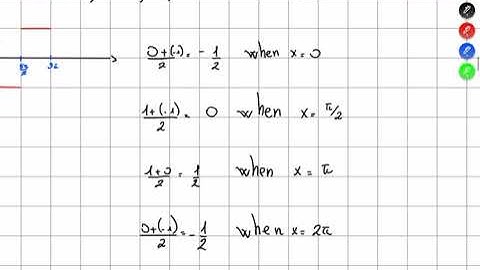 (0+(-1))/2 = -1/2 when x=0
(1+(-1))/2 = 0 when x=π/2
(1+0)/2 = 1/2 when x=π
(0+(-1))/2 = -1/2 when x=2π